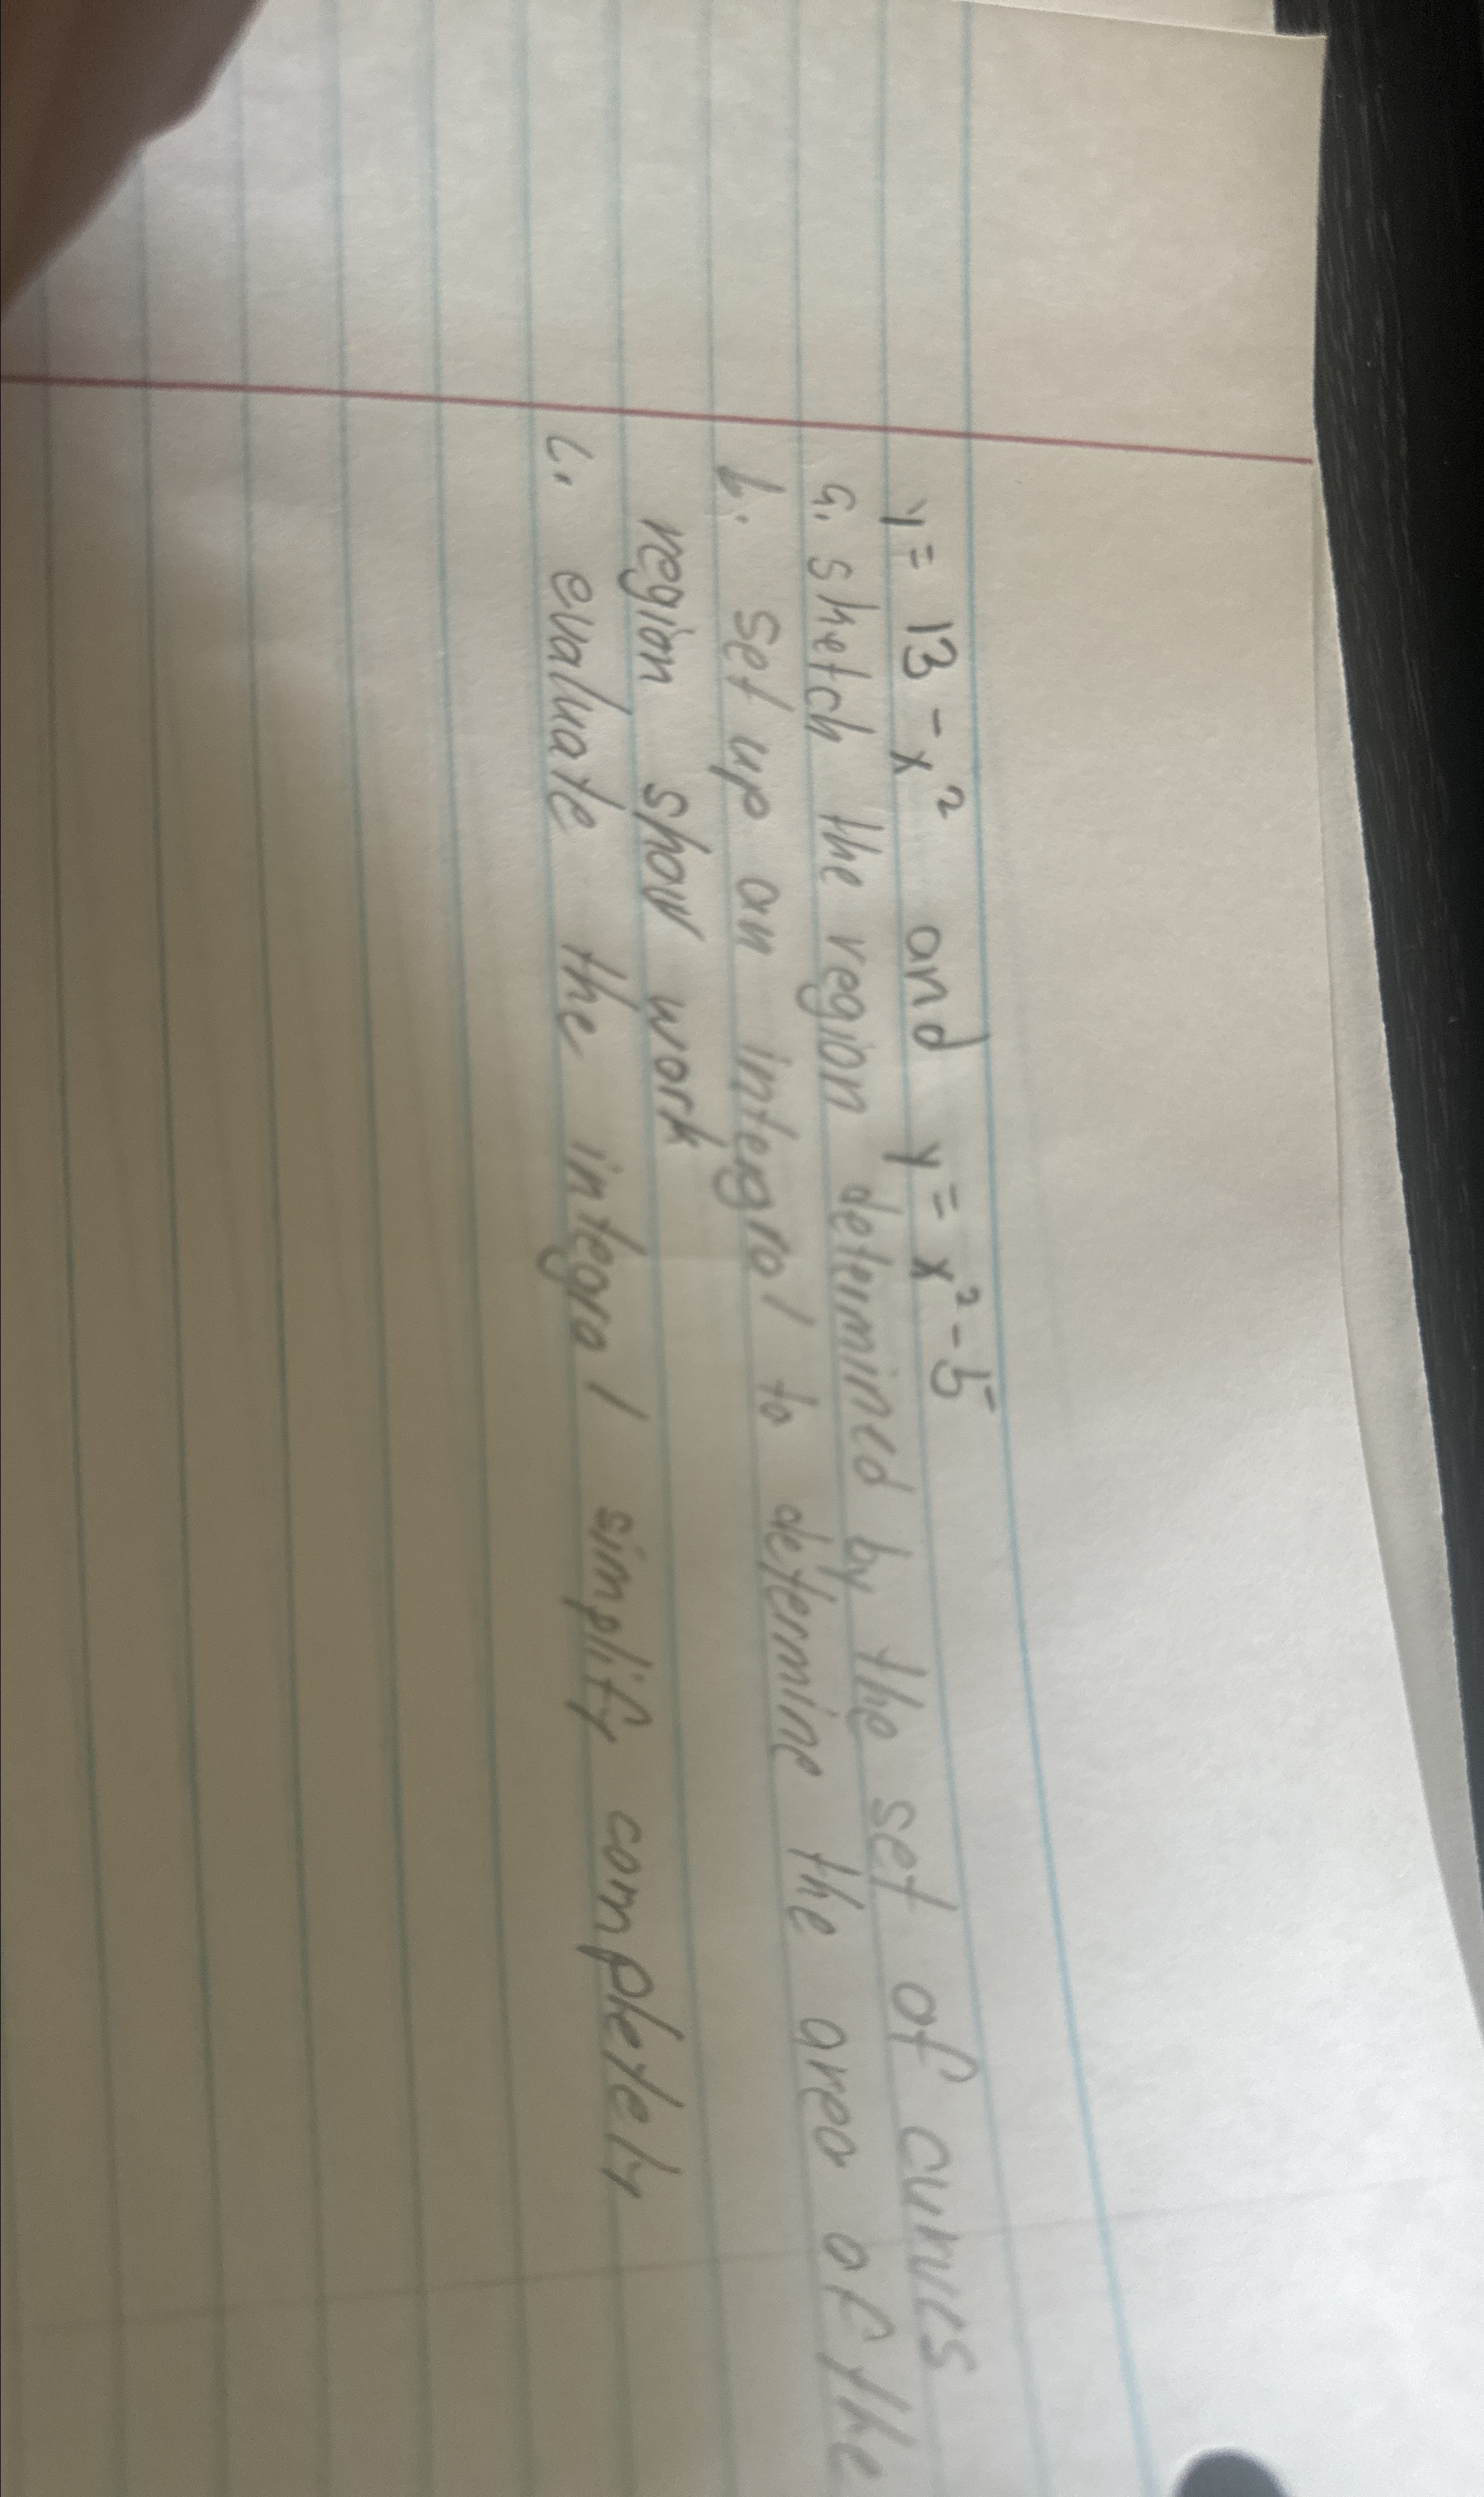 y = 13 - x² and y = x² - 5
a. sketch the region determined by the set of curves
b. set up an integral to determine the area of the
region show work
c. evaluate the integral simplify completely